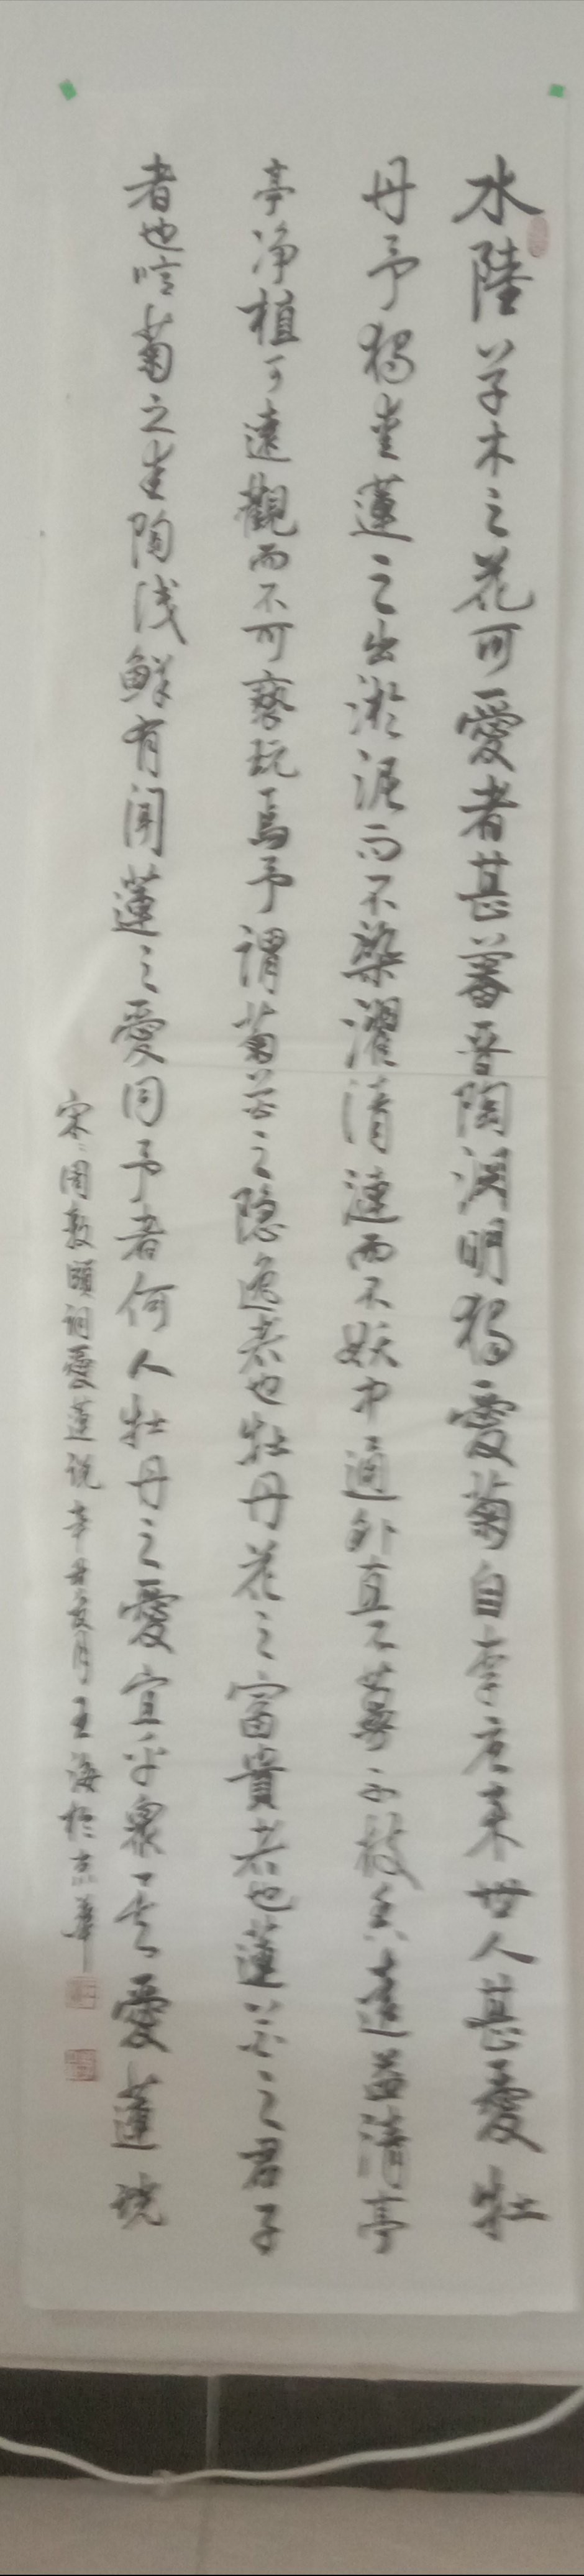 水陸草木之花可愛者甚蕃晉陶渊明獨愛菊自李唐来世人甚愛牡
丹予獨愛蓮之出淤泥而不染濯清漣而不妖中通外直不蔓不枝香遠益清亭
亭净植可遠觀而不可褻玩焉予謂菊花之隐逸者也牡丹花之富貴者也蓮花之君子
者也噫菊之愛陶後鮮有聞蓮之愛同予者何人牡丹之愛宜乎衆矣愛蓮說
宋周敦頤詞愛蓮说辛丑夏月王海於京華